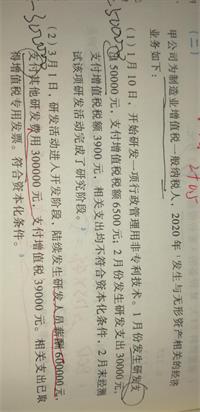 (二)
甲公司为制造业增值税一般纳税人，2020年发生与无形资产相关的经济
业务如下：
(1) 1月10日，开始研发一项行政管理用非专利技术。1月份发生研发支
出50000元，支付增值税税额6500元；2月份发生研发支出30000元，
支付增值税税额3900元，相关支出均不符合资本化条件，2月末经测
试该项研发活动完成了研究阶段。
(2) 3月1日，研发活动进入开发阶段，陆续发生研发人员薪酬600000元，
支付其他研发费用300000元，支付增值税39000元。相关支出已取
得增值税专用发票。符合资本化条件。